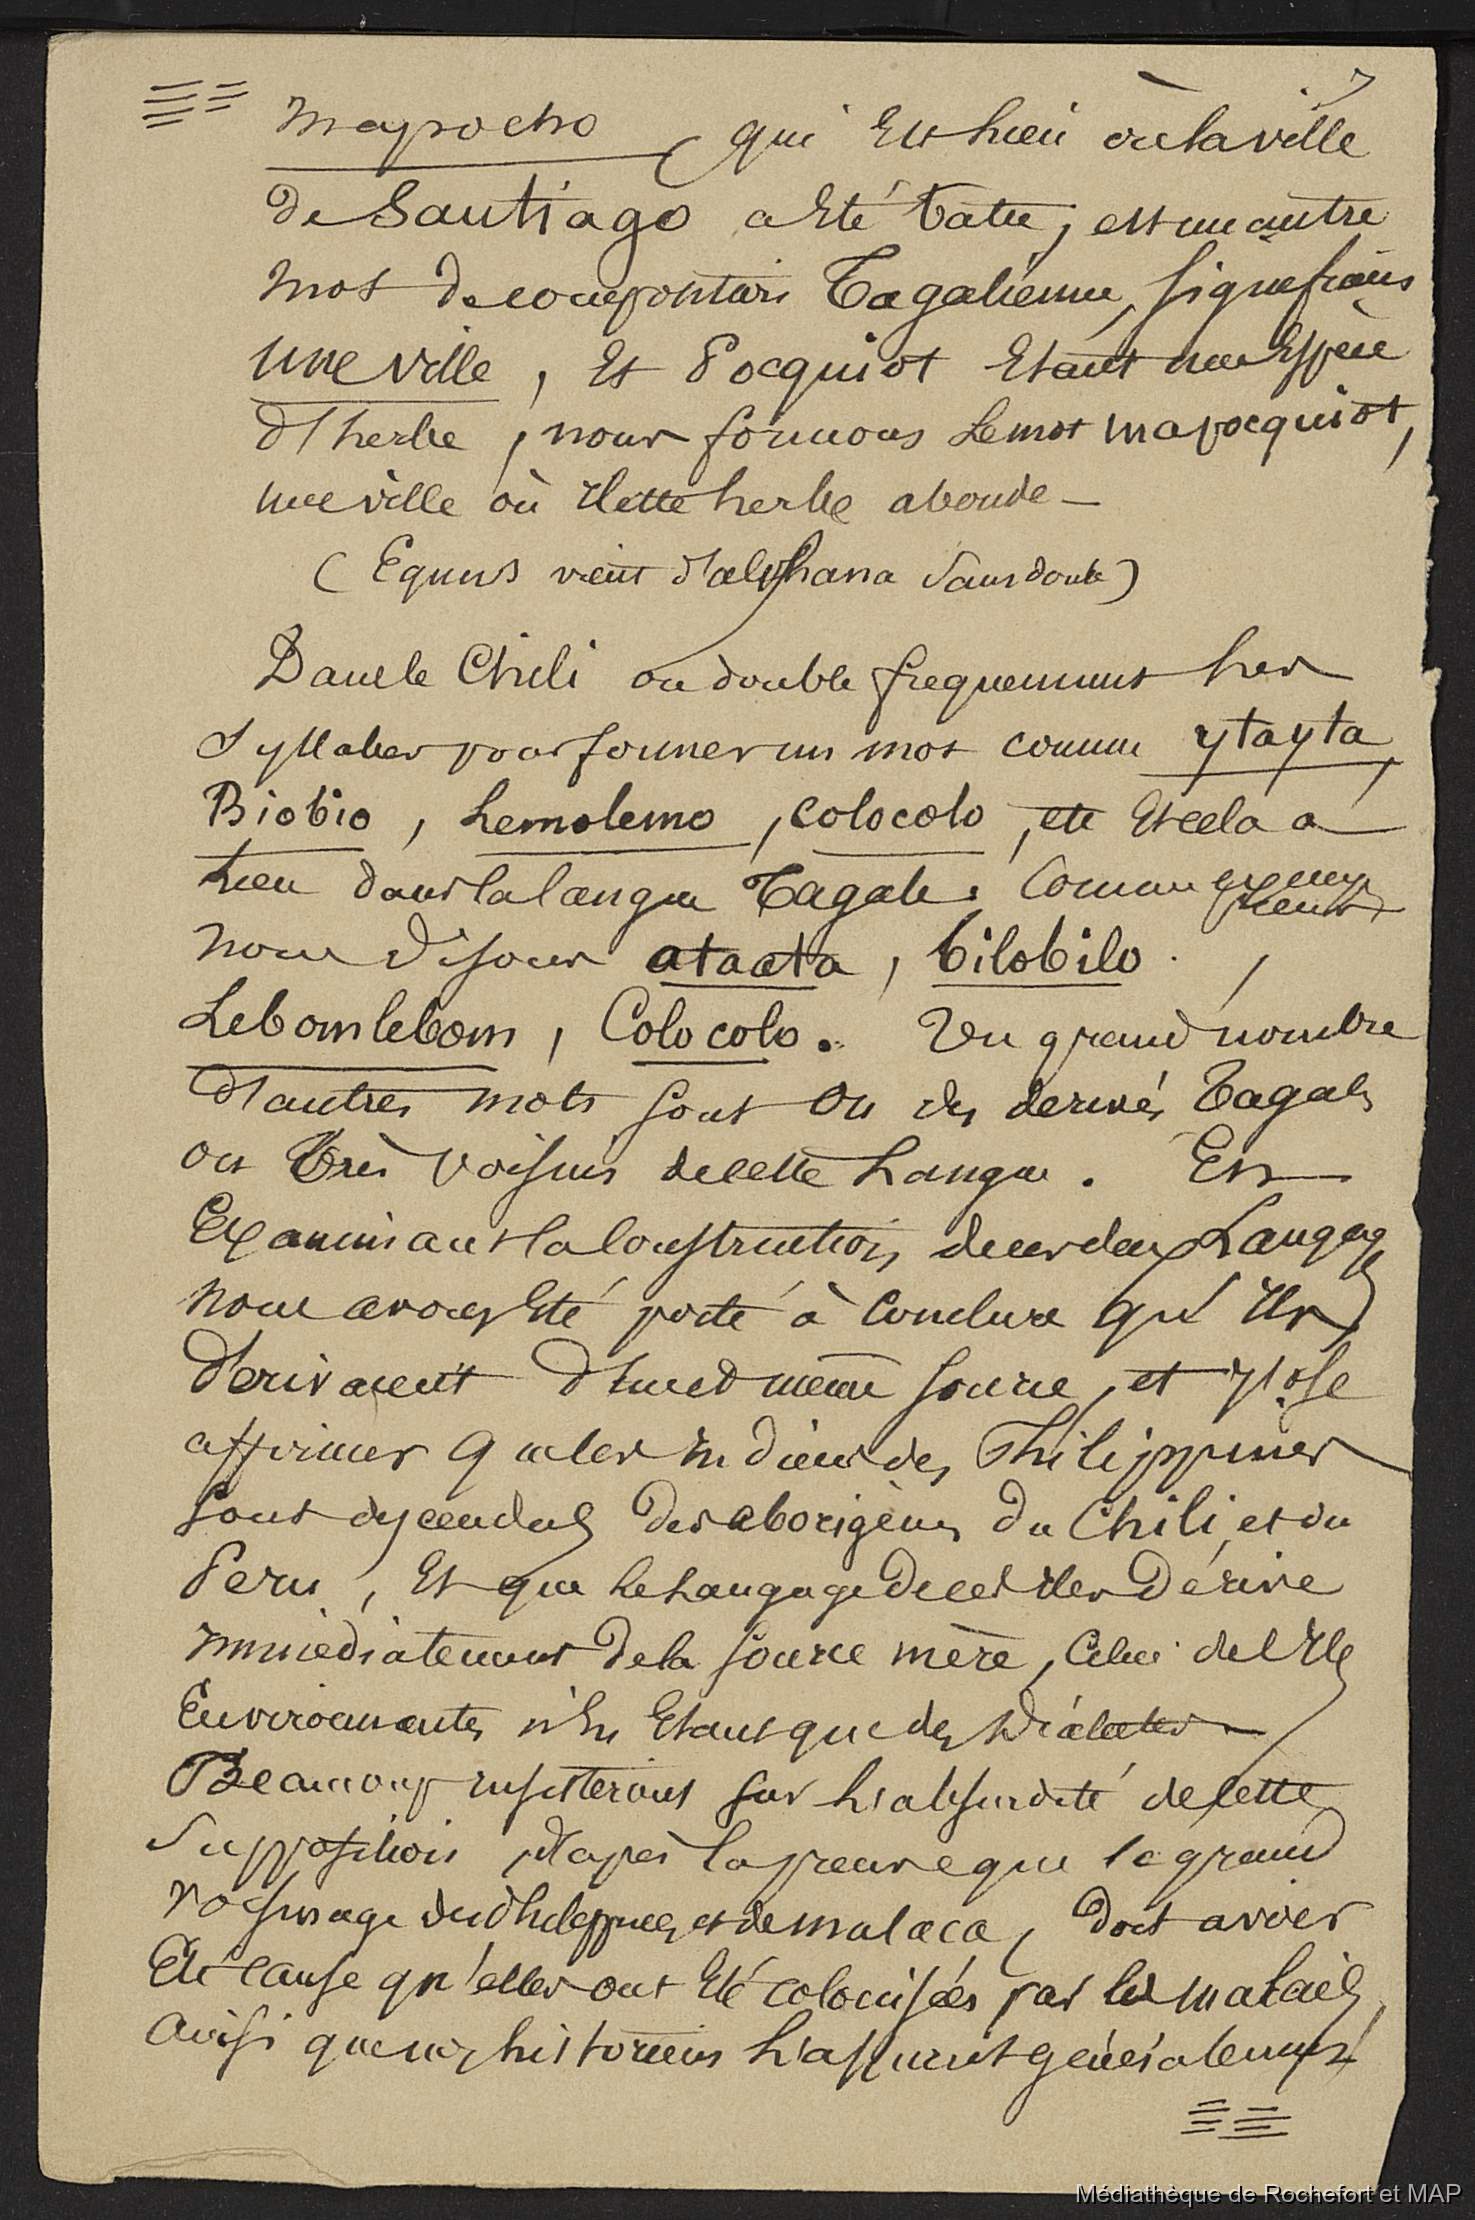 7
Mapocho, qui est lieu où la ville
de Santiago a été batie, est un autre
mot de composition Tagalienne, signifiant
une ville, et Pocquiot étant une espèce
d'herbe, nous formons le mot mapocquiot,
une ville où cette herbe abonde –
(Equus vient d'alphana sans doute)
Dans le Chili on double frequemment les
syllabes pour former un mot comme ytayta,
Biobio, Lemolemo, Colocolo, etc et cela a
lieu dans la langue Tagale. Comme exemp
nous disons ataata, bilobilo,
Lebomlebom, Colocolo. Un grand nombre
d'autres mots sont ou des derivés Tagals
ou très voisins de cette Langue. En
Examinant la construction de ces deux Langag
nous avons été porté à conclure qu'ils
derivaient d'une même source, et j'ose
affirmer que les indiens des Philippines
sont descendus des aborigènes du Chili et du
Perou, et que le Langage de ces iles dérive
immediatement de la source mère, celui des iles
Environnantes n'en étant que des dialectes –
Beaucoup insisterons sur l'absurdité de cette
supposition, d'après la preuve que le grand
voisinage des Philippines et de malaca, doit avoir
été cause qu'elles ont été colonisées par les malais,
ainsi que nos historiens l'assurent généralement
Médiathèque de Rochefort et MAP